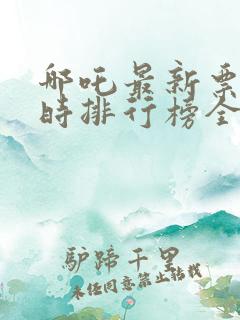 哪吒最新票
时排行榜全
驴蹄千里
未经同意禁止转载